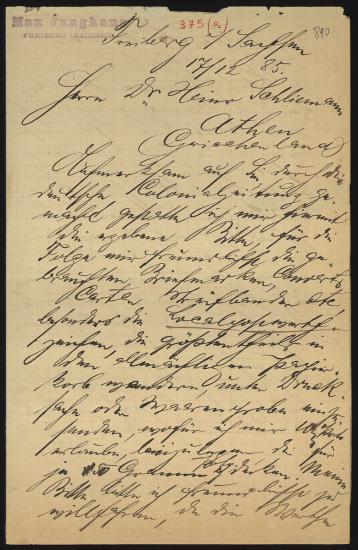 Max Junghans
FREIBERG (SACHSEN)
375 (a)
890
Freiberg i/ Sachsen
17/12 85.
Herrn Dr. Heinr Schliemann
Athen
Griechenland
Aufmerksam auf Sie durch die
deutsche Colonialzeitung ge-
macht gestatte ich mir hiermit
die ergebene Bitte, für die
Folge mir freundlichst die ge-
brauchten Briefmarken, Couverts,
Karten, Streifbänder etc.
besonders die Localpostwerth-
zeichen, die größtentheils in
den Papier-
korb wandern, unter Druck-
sache oder Waarenproben
senden, wofür ich mir
erlaube, beizulegen die für
zu decken. Meine
Bitte, bitte ich freundlichst zu
willfahren, da die